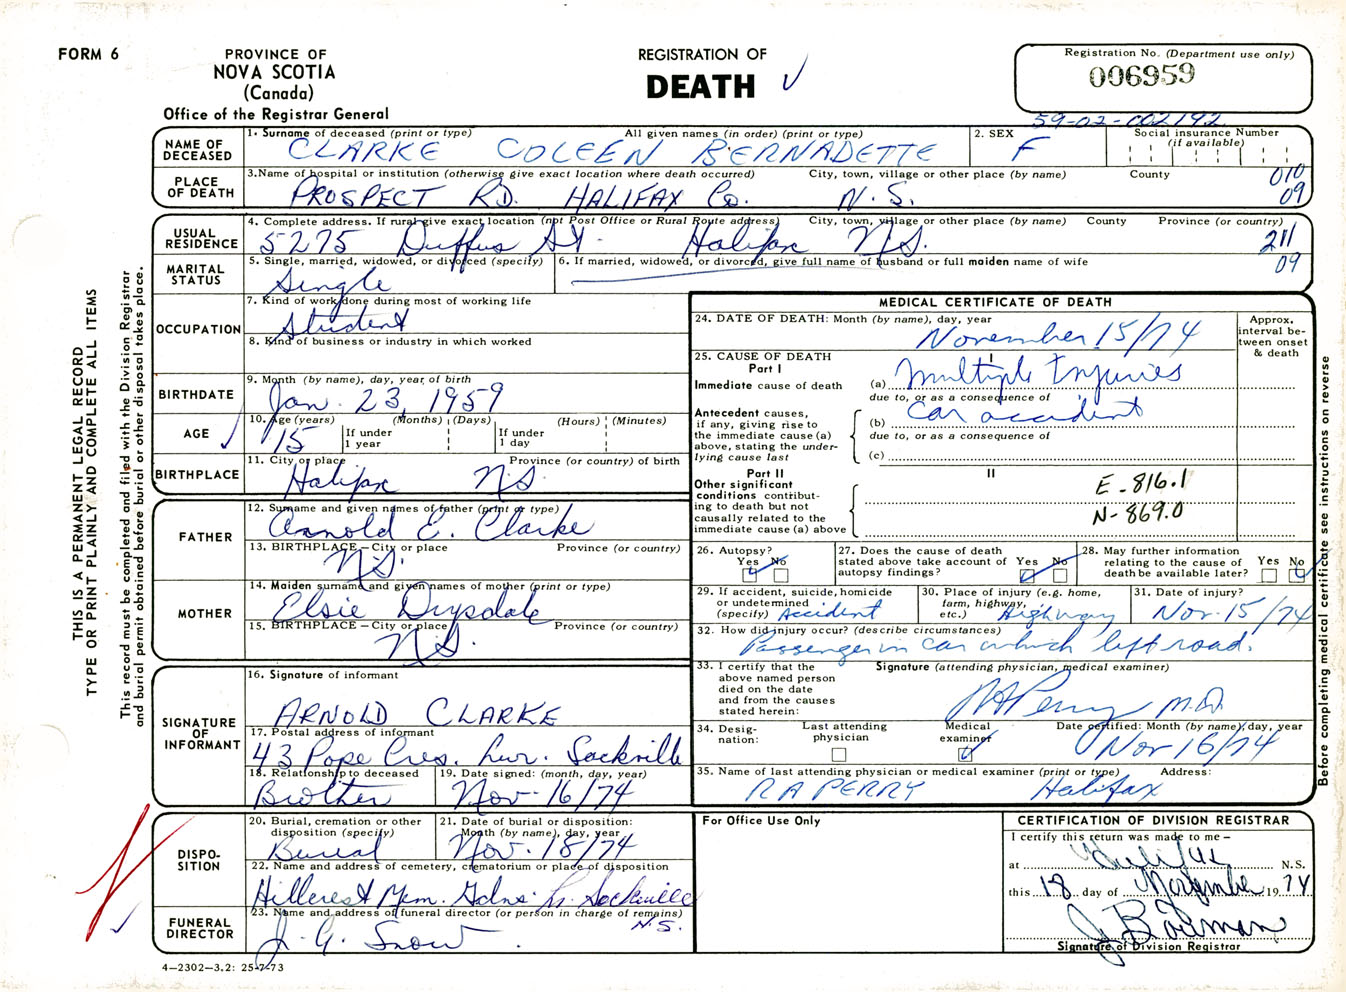 FORM 6
PROVINCE OF
NOVA SCOTIA
(Canada)
Office of the Registrar General
REGISTRATION OF
DEATH
Registration No. (Department use only)
006959
59-02-002192
NAME OF DECEASED
1. Surname of deceased (print or type) All given names (in order) (print or type)
CLARKE COLEEN BERNADETTE
2. SEX
F
Social insurance Number
(if available)
PLACE OF DEATH
3. Name of hospital or institution (otherwise give exact location where death occurred) City, town, village or other place (by name) County
PROSPECT RD. HALIFAX Co. N.S.
010
09
USUAL RESIDENCE
4. Complete address. If rural give exact location (not Post Office or Rural Route address) City, town, village or other place (by name) County Province (or country)
5275 Duffus St. Halifax N.S.
211
09
MARITAL STATUS
5. Single, married, widowed, or divorced (specify)
Single
6. If married, widowed, or divorced, give full name of husband or full maiden name of wife
OCCUPATION
7. Kind of work done during most of working life
Student
8. Kind of business or industry in which worked
BIRTHDATE
9. Month (by name), day, year of birth
Jan. 23, 1959
AGE
10. Age (years) (Months) (Days) (Hours) (Minutes)
15
If under 1 year
If under 1 day
BIRTHPLACE
11. City or place Province (or country) of birth
Halifax N.S.
FATHER
12. Surname and given names of father (print or type)
Arnold E. Clarke
13. BIRTHPLACE—City or place Province (or country)
N.S.
MOTHER
14. Maiden surname and given names of mother (print or type)
Elsie Drysdale
15. BIRTHPLACE—City or place Province (or country)
N.S.
SIGNATURE OF INFORMANT
16. Signature of informant
ARNOLD CLARKE
17. Postal address of informant
43 Pope Cres. Lwr. Sackville
18. Relationship to deceased
Brother
19. Date signed: (month, day, year)
Nov. 16/74
DISPO-
SITION
20. Burial, cremation or other disposition (specify)
Burial
21. Date of burial or disposition: Month (by name), day, year
Nov. 18/74
22. Name and address of cemetery, crematorium or place of disposition
Hillcrest Mem. Gdns. Lr. Sackville
N.S.
FUNERAL DIRECTOR
23. Name and address of funeral director (or person in charge of remains)
J. G. Snow
MEDICAL CERTIFICATE OF DEATH
24. DATE OF DEATH: Month (by name), day, year
November 15/74
Approx. interval be-
tween onset & death
25. CAUSE OF DEATH
Part I
I
Immediate cause of death
(a) Multiple Injuries
due to, or as a consequence of
Antecedent causes, if any, giving rise to the immediate cause (a) above, stating the under-
lying cause last
(b) car accident
due to, or as a consequence of
(c)
Part II
II
Other significant conditions contribut-
ing to death but not causally related to the immediate cause (a) above
E-816.1
N-869.0
26. Autopsy?
Yes No
27. Does the cause of death stated above take account of autopsy findings?
Yes No
28. May further information relating to the cause of death be available later?
Yes No
29. If accident, suicide, homicide or undetermined (specify)
Accident
30. Place of injury (e.g. home, farm, highway, etc.)
Highway
31. Date of injury?
Nov. 15/74
32. How did injury occur? (describe circumstances)
Passenger in car which left road.
33. I certify that the above named person died on the date and from the causes stated herein:
Signature (attending physician, medical examiner)
RA Perry M.D.
34. Desig-
nation:
Last attending physician
Medical examiner
Date certified: Month (by name), day, year
Nov 16/74
35. Name of last attending physician or medical examiner (print or type) Address:
RA PERRY Halifax
For Office Use Only
CERTIFICATION OF DIVISION REGISTRAR
I certify this return was made to me —
at Halifax N.S.
this 18 day of November 1974
Signature of Division Registrar
4—2302—3.2: 25-7-73
THIS IS A PERMANENT LEGAL RECORD
TYPE OR PRINT PLAINLY AND COMPLETE ALL ITEMS
This record must be completed and filed with the Division Registrar
and burial permit obtained before burial or other disposal takes place.
Before completing medical certificate see instructions on reverse